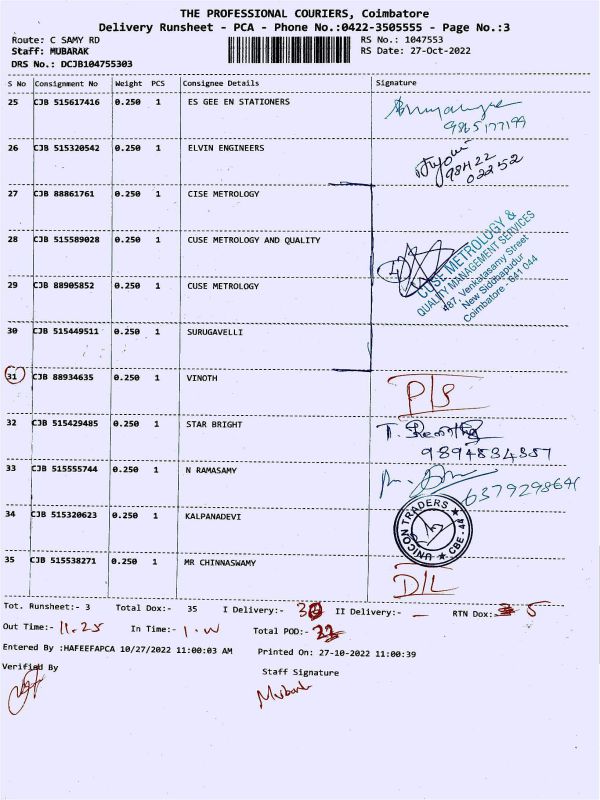 THE PROFESSIONAL COURIERS, Coimbatore
Delivery Runsheet - PCA - Phone No.:0422-3505555 - Page No.:3
Route: C SAMY RD RS No.: 1047553
Staff: MUBARAK RS Date: 27-Oct-2022
DRS No.: DCJB104755303
S No Consignment No Weight PCS Consignee Details Signature
25 CJB 515617416 0.250 1 ES GEE EN STATIONERS
9865177199
26 CJB 515320542 0.250 1 ELVIN ENGINEERS
98422
02252
27 CJB 88861761 0.250 1 CISE METROLOGY
28 CJB 515589028 0.250 1 CUSE METROLOGY AND QUALITY
CUSE METROLOGY &
QUALITY MANAGEMENT SERVICES
487, Venkatasamy Street
New Siddhapudur
Coimbatore - 641 044
29 CJB 88905852 0.250 1 CUSE METROLOGY
30 CJB 515449511 0.250 1 SURUGAVELLI
31 CJB 88934635 0.250 1 VINOTH
32 CJB 515429485 0.250 1 STAR BRIGHT
9894834357
33 CJB 515555744 0.250 1 N RAMASAMY
34 CJB 515320623 0.250 1 KALPANADEVI
UNICON TRADERS ★ CBE-44 ★
35 CJB 515538271 0.250 1 MR CHINNASWAMY
D/L
Tot. Runsheet:- 3 Total Dox:- 35 I Delivery:- II Delivery:- – RTN Dox:- 5
Out Time:- 11.25 In Time:- Total POD:-
Entered By :HAFEEFAPCA 10/27/2022 11:00:03 AM Printed On: 27-10-2022 11:00:39
Verified By
Staff Signature
Mubarak